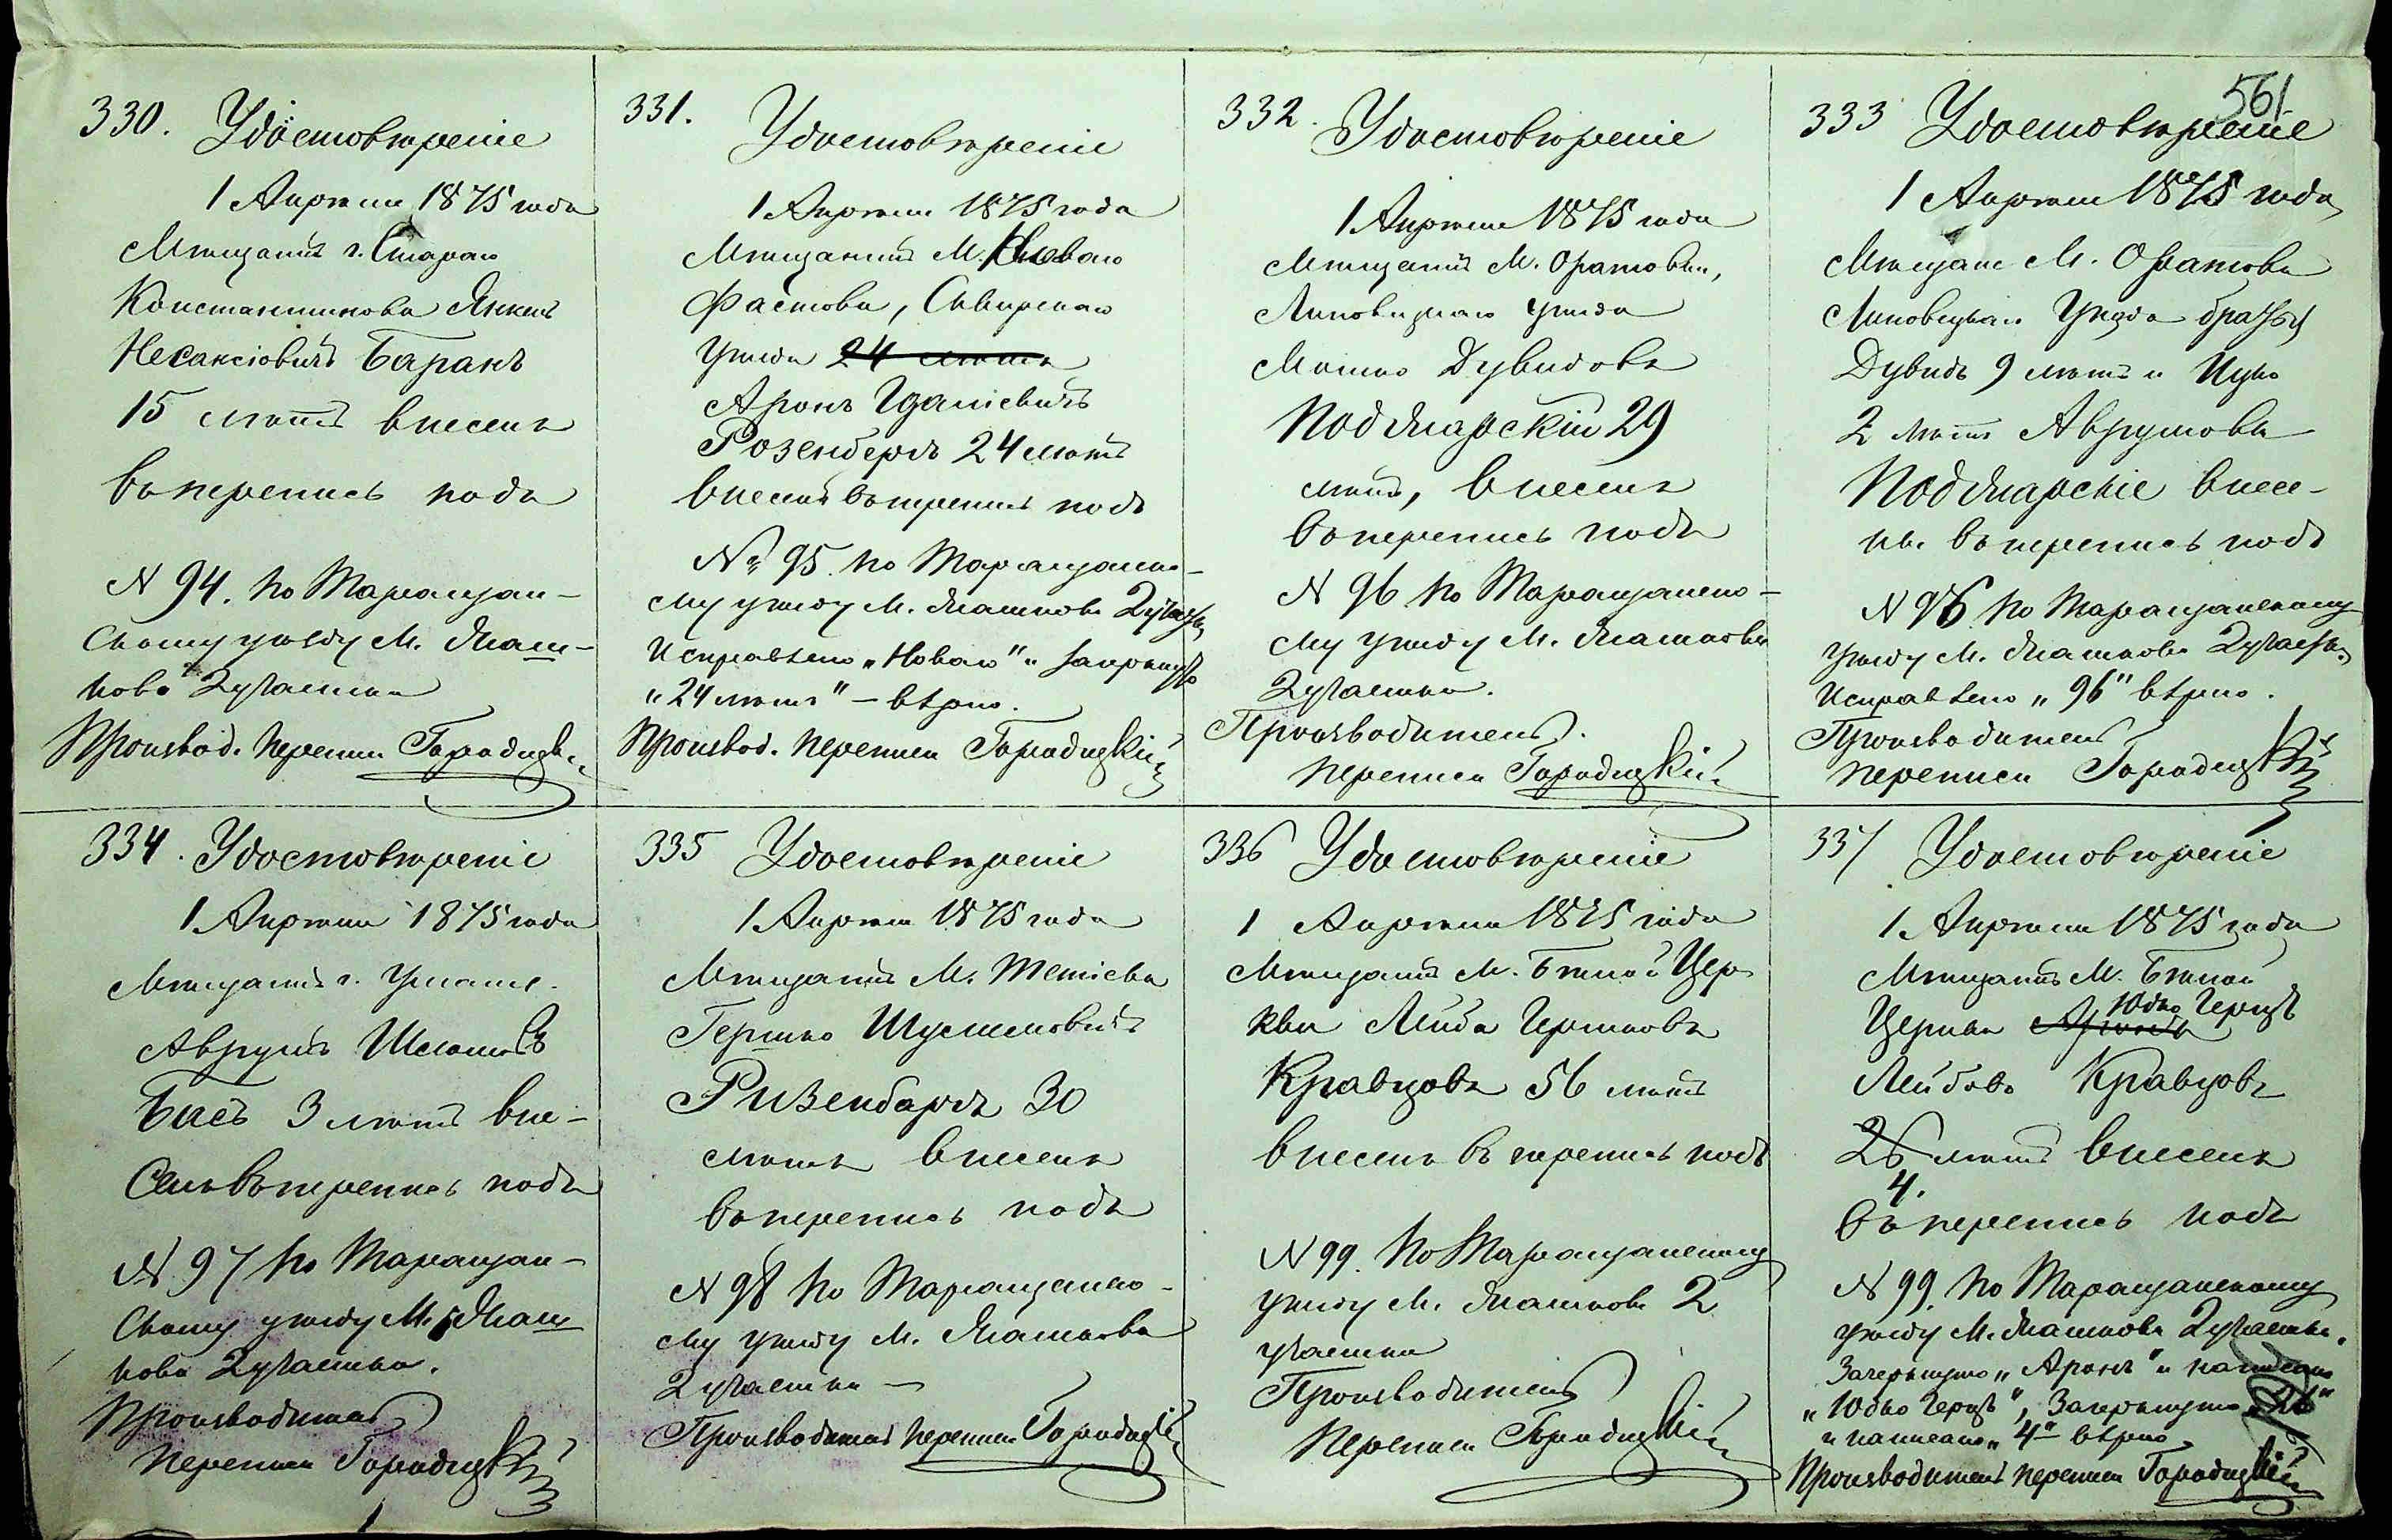 561
330. Удостовѣреніе
1 Апрѣля 1875 года
Мѣщанинъ г. Стараго
Константинова Янкель
Баранъ
15 лѣтъ внесенъ
въ перепись подъ
N 94. по Таращан-
скому уѣзду М. Пяти-
2 участка
Производ. переписи Городецкій
331.
Удостовѣреніе
1 Апрѣля 1875 года
Мѣщанинъ М. Новаго
Фастова, Сквирскаго
уѣзда 24 лѣтъ
Аронъ
Розенбергъ 24 лѣтъ
внесенъ въ перепись подъ
№ 95. по Таращанско-
му уѣзду М. 2 участк.
Исправлено „Новаго" и зачеркнуто
„24 лѣтъ" – вѣрно.
Производ. переписи Городецкій
332.
Удостовѣреніе
1 Апрѣля 1875 года
Мѣщанинъ М. Оратова,
Липовецкаго уѣзда
Дувидовъ
29
лѣтъ, внесенъ
въ перепись подъ
N 96 по Таращанско-
му уѣзду М.
2 участка.
Производитель
переписи Городецкій
333 Удостовѣреніе
1 Апрѣля 1875 года
Мѣщане М. Оратова
Липовецкаго Уѣзда братья
Дувидъ 9 лѣтъ и Ицко
2 лѣтъ Аврумовы
внесе-
ны въ перепись подъ
N 96 по Таращанскому
уѣзду М. 2 участк.
Исправлено „96" вѣрно.
Производитель
переписи Городецкій
334. Удостовѣреніе
1 Апрѣля 1875 года
Мѣщанинъ г. Умани
Аврумъ
Басъ 3 лѣтъ вне-
сенъ въ перепись подъ
N 97 по Таращан-
скому уѣзду М.
2 участка.
Производитель
переписи Городецкій
335 Удостовѣреніе
1 Апрѣля 1875 года
Мѣщанинъ М. Тетіева
Гершко
Ризенбергъ 30
лѣтъ внесенъ
въ перепись подъ
N 98 по Таращанско-
му уѣзду М.
2 участка –
Производитель переписи Городецкій
336 Удостовѣреніе
1 Апрѣля 1875 года
Мѣщанинъ М. Бѣлой Цер-
кви Лейба Гершковъ
Кравцовъ 56 лѣтъ
внесенъ въ перепись подъ
N 99. по Таращанскому
уѣзду М. 2
участка
Производитель
переписи Городецкій
337 Удостовѣреніе
1 Апрѣля 1875 года
Мѣщанинъ М. Бѣлой
Юдко Герцъ
Церкви Аронъ
Лейбовъ Кравцовъ
26 лѣтъ внесенъ
4.
въ перепись подъ
N 99. по Таращанскому
уѣзду М. 2 участка.
Зачеркнуто „Аронъ" и написано
„Юдко Герцъ", Зачеркнуто „26"
и написано „4" вѣрно
Производитель переписи Городецкій